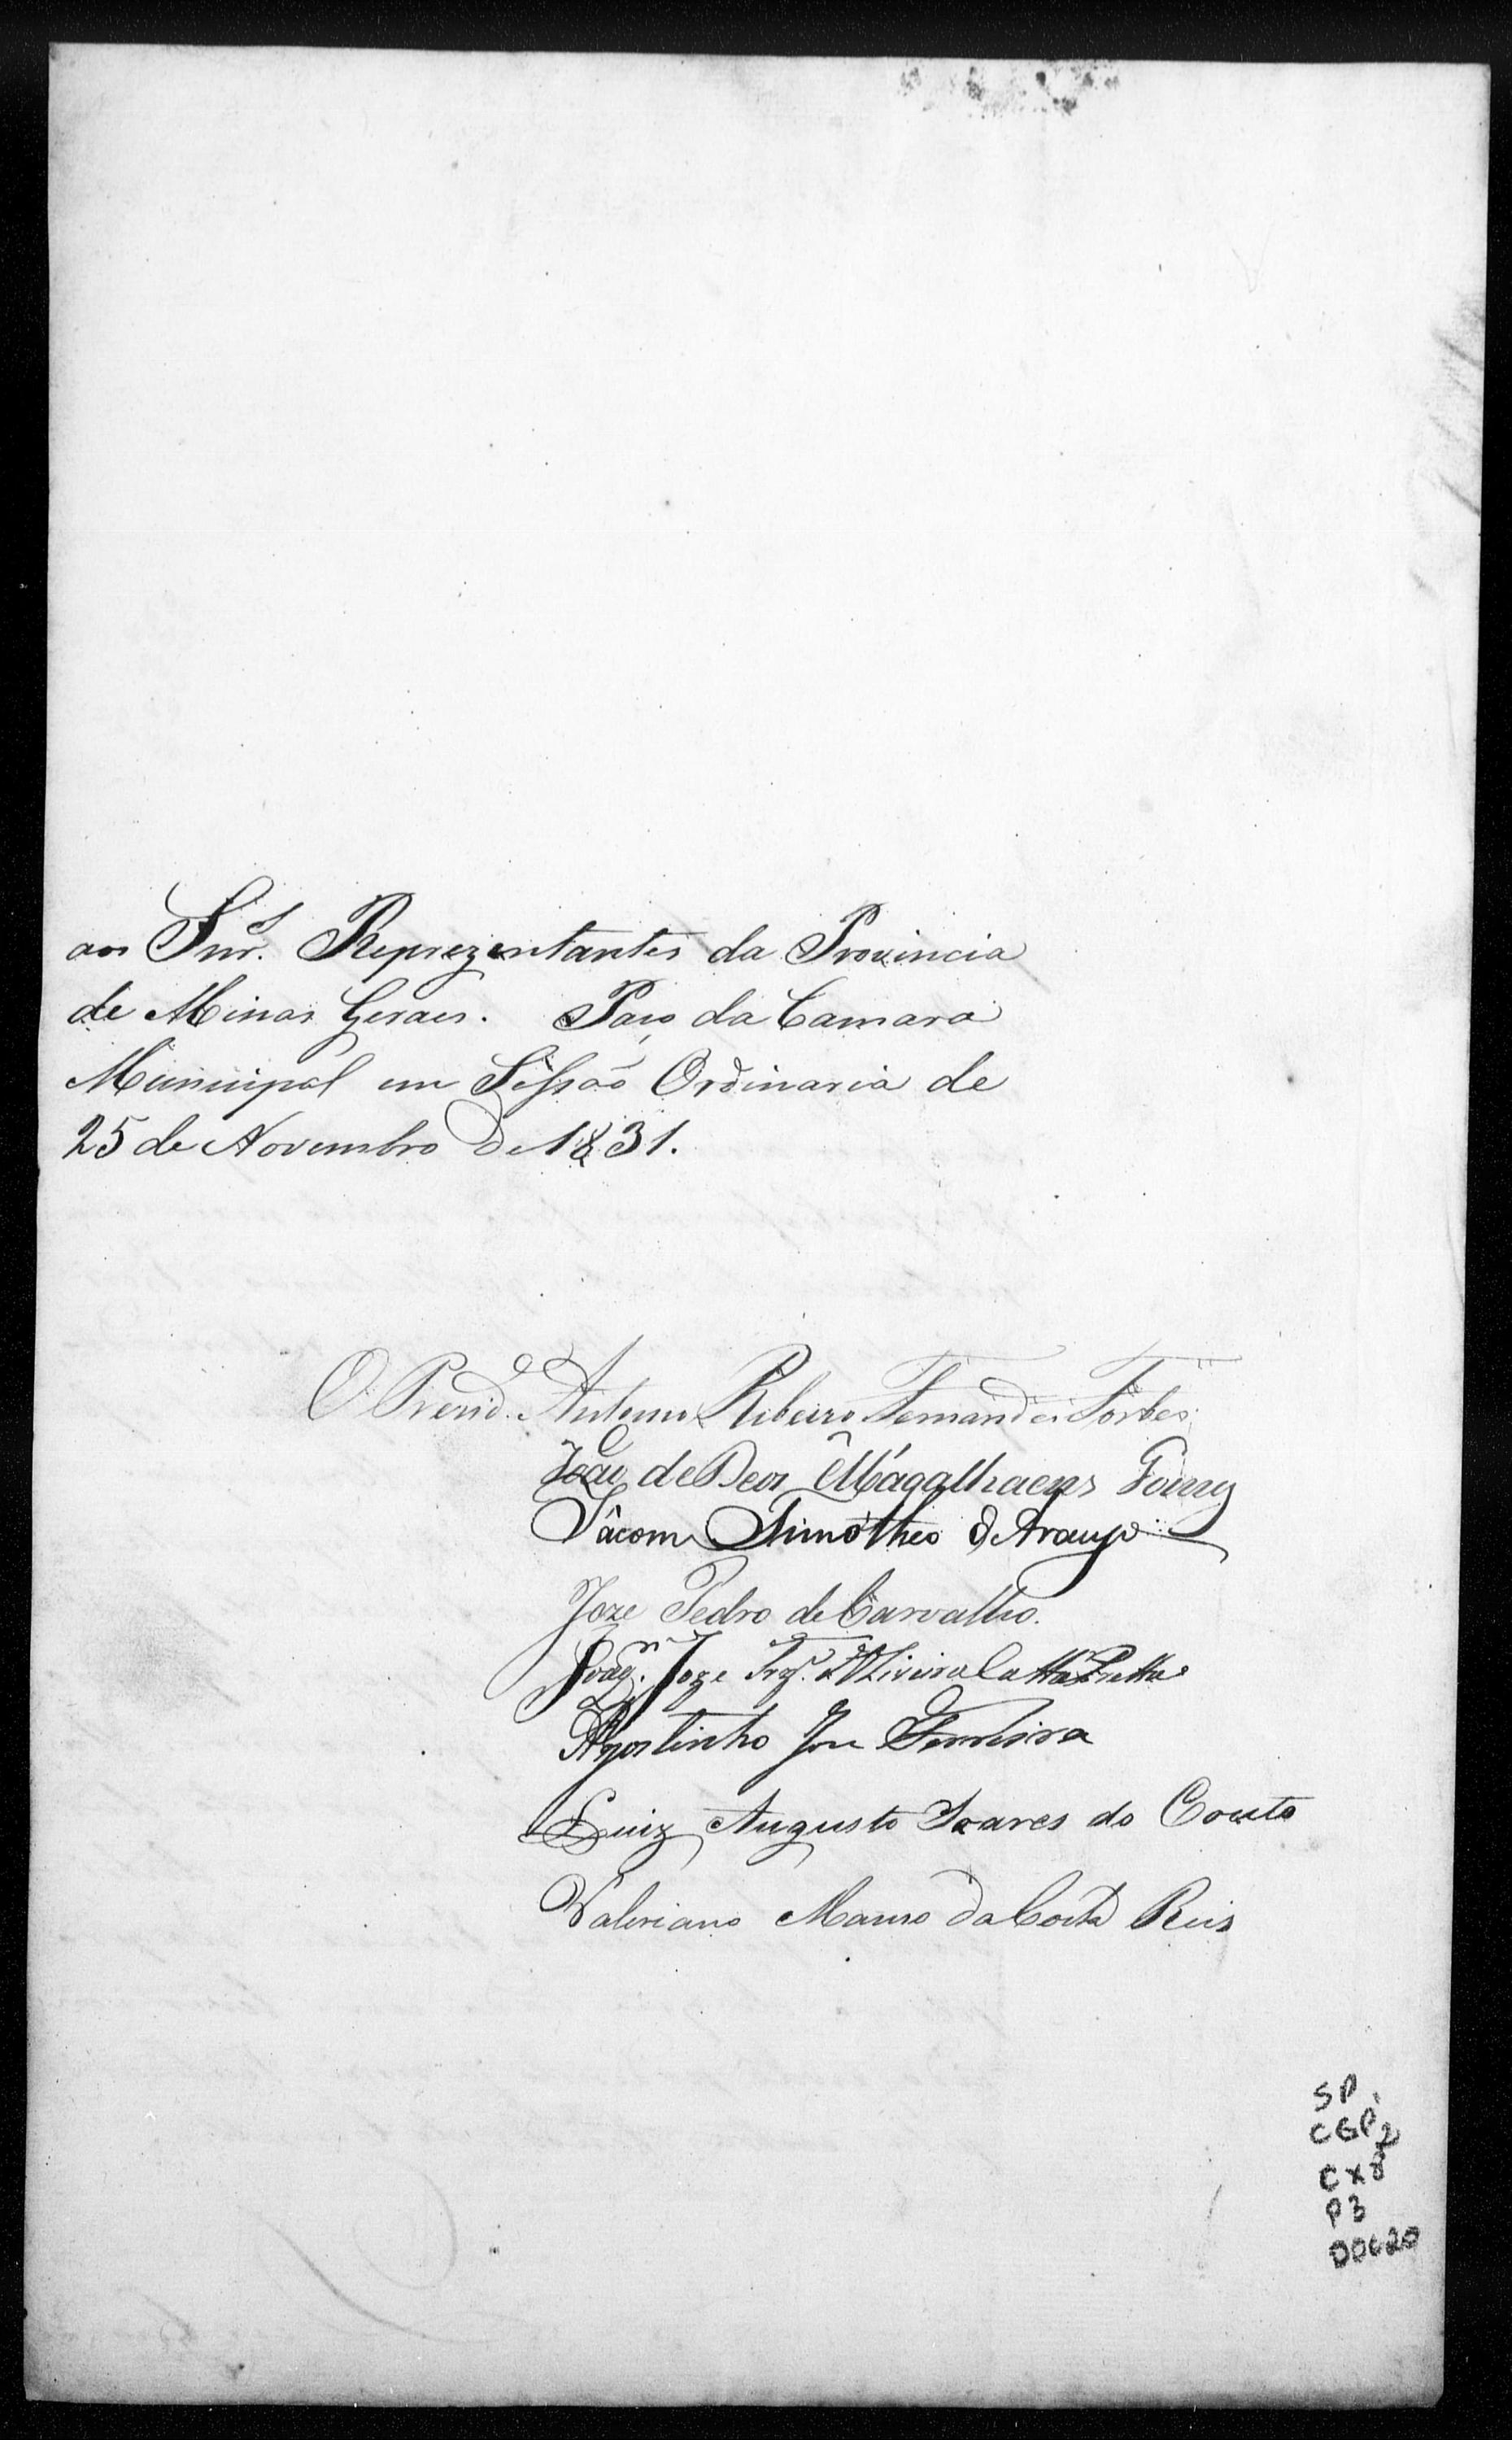 aos Snr.s Reprezentantes da Provincia
de Minas Geraes. Paço da Camara
Municipal em Sessão Ordinaria de
25 de Novembro de 1831.
O Prezid.e Antonio Ribeiro Fernandes Forbes
João de Deos Magalhaens Gomes
Timótheo de Araujo
Joze Pedro de Carvalho.
Joaq.m Joze
Agostinho Joze Ferreira
Luiz Augusto Soares do Couto
Valeriano Manso da Costa Reis
SP
CGP2
CX8
P3
D0620